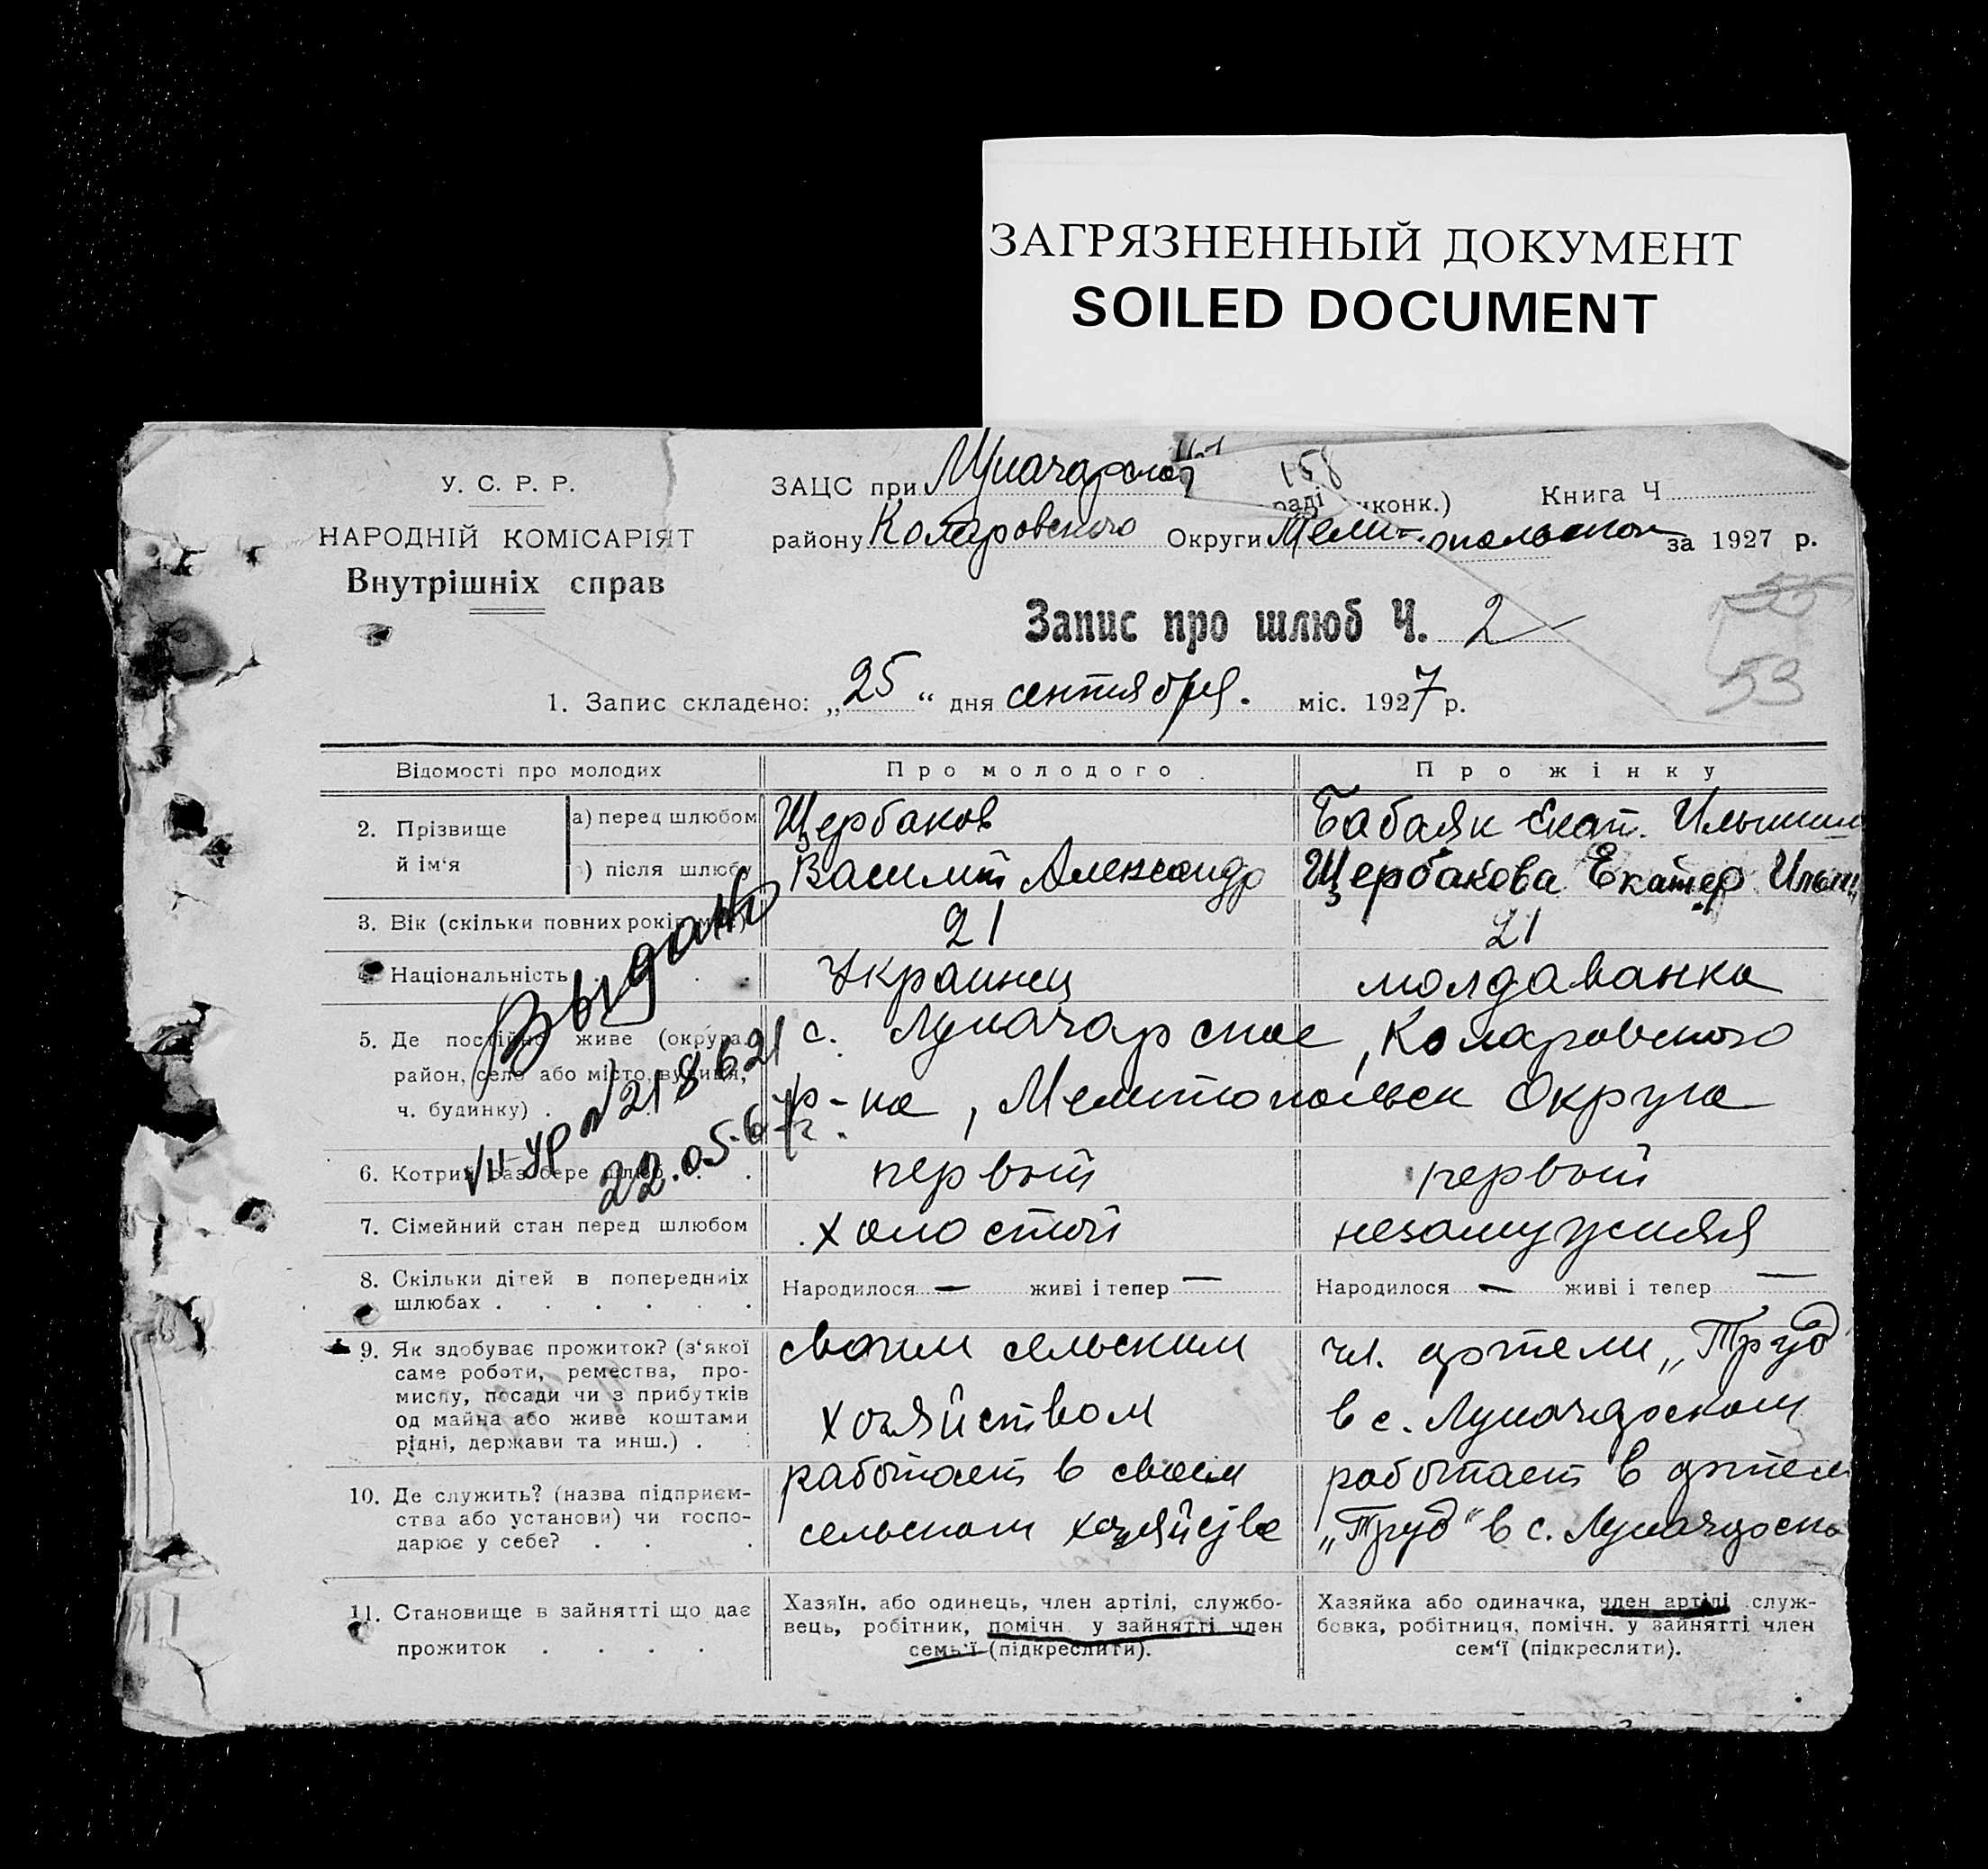 ЗАГРЯЗНЕННЫЙ ДОКУМЕНТ
SOILED DOCUMENT
У. С. Р. Р.
НАРОДНІЙ КОМІСАРІЯТ
Внутрішніх справ
ЗАЦС при Луначарской раді конк.) Книга Ч
158
району Коларовского Округи за 1927 р.
Запис про шлюб Ч. 2
53
1. Запис складено: „25“ дня сентября. міс. 1927 р.
Відомості про молодих Про молодого Про жінку
2. Прізвище й ім‘я
а) перед шлюбом Щербаков Бабаян Екат.
) після шлюбу Василий Александр Щербакова Екатер
3. Вік (скільки повних років 21 21
Національність Украинец молдаванка
5. Де постійно живе (округа, с. Луначарское, Коларовского
район, село або місто, вулиця, р-на, Мелитопольск Округа
ч. будинку) .
Выдано
22.05.67г.
6. Котрий раз бере шлюб первый первый
7. Сімейний стан перед шлюбом холостой незамужняя
8. Скільки дітей в попередниіх шлюбах . Народилося — живі і тепер — Народилося — живі і тепер —
9. Як здобуває прожиток? (з‘якої своим сельским чл. артели „Труд
саме роботи, ремества, про-
мислу, посади чи з прибутків хозяйством в с. Луначарском
од майна або живе коштами
рідні, держави та инш.) .
10. Де служить? (назва підприєм- работает в своем работает в артел
ства або установи) чи госпо- сельском хозяйстве „Труд“ в с. Луначарско
дарює у себе? .
11. Становище в зайнятті що дає Хазяїн, або одинець, член артілі, службо- Хазяйка або одиначка, член артілі служ-
прожиток . вець, робітник, помічн у зайнятті член бовка, робітниця, помічн. у зайнятті член
семь‘ї (підкреслити). сем‘ї (підкреслити).